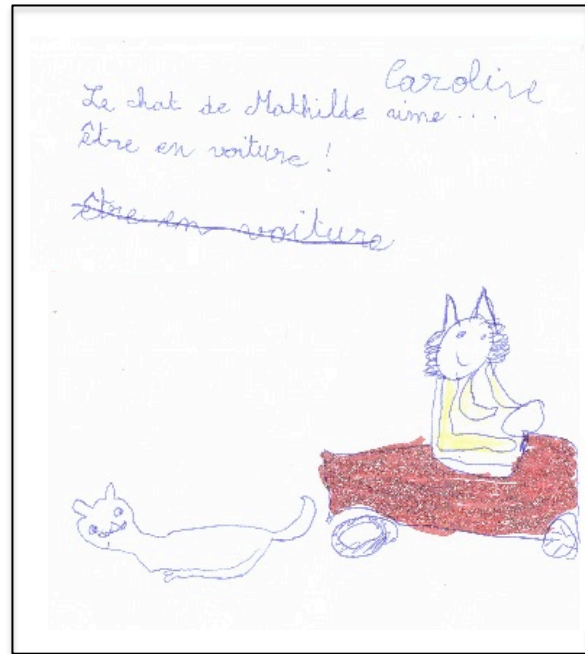 Caroline
Le chat de Mathilde aime ...
être en voiture !
être en voiture